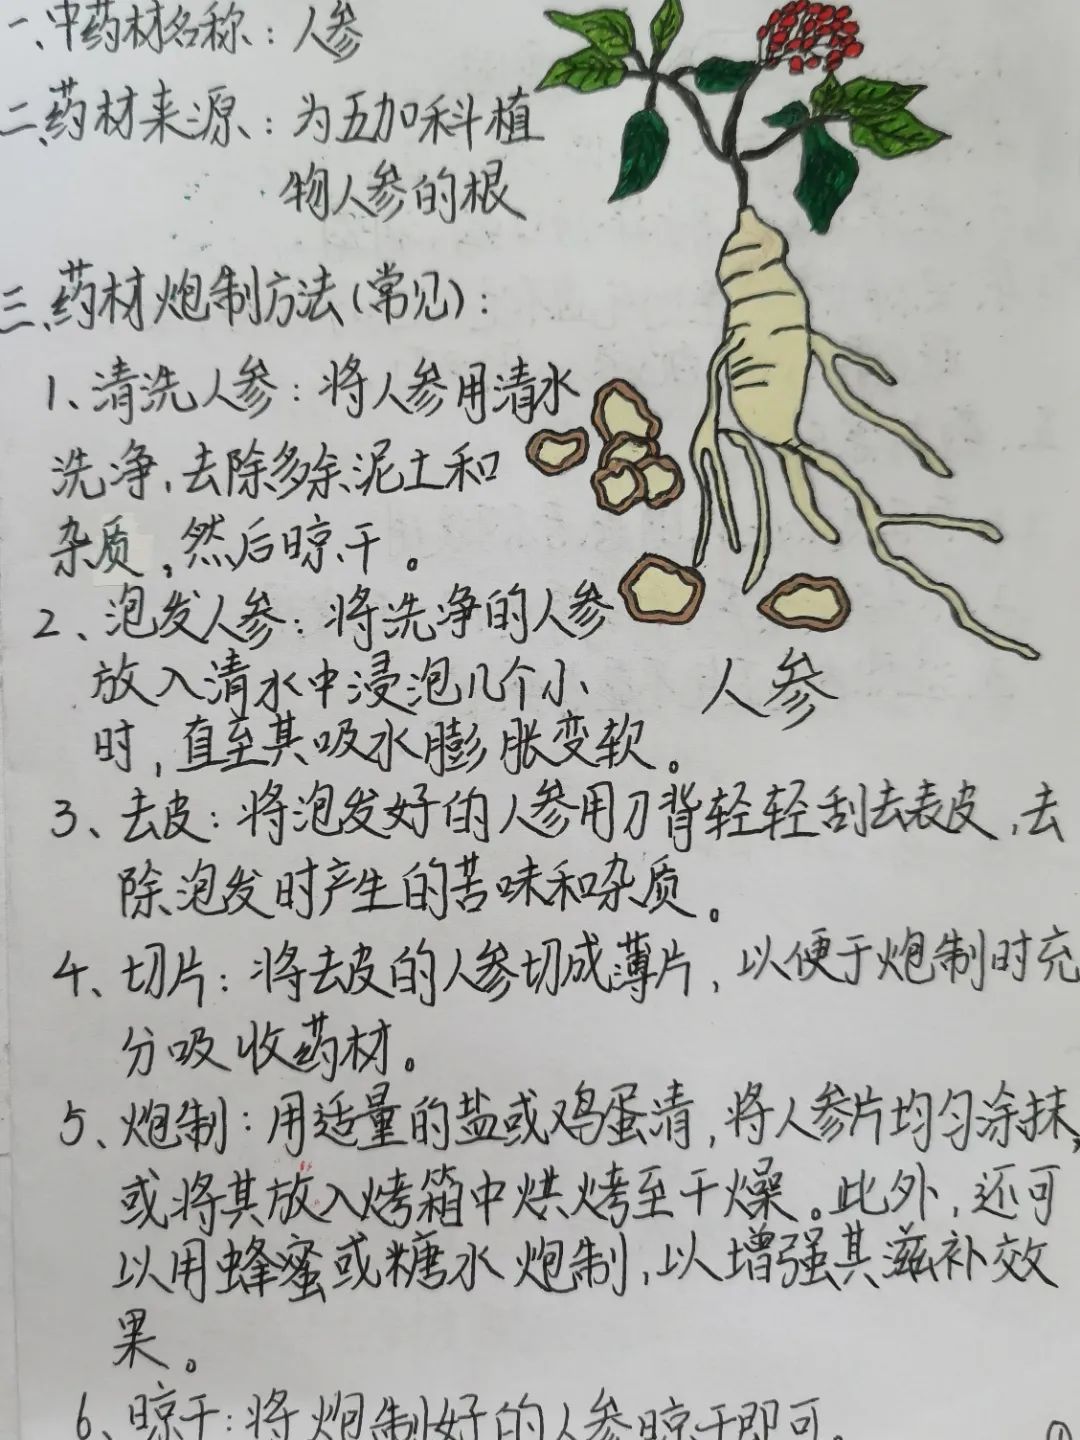 一、中药材名称：人参
二、药材来源：为五加科植
物人参的根
三、药材炮制方法(常见)：
1、清洗人参：将人参用清水
洗净，去除多余泥土和
杂质，然后晾干。
2、泡发人参：将洗净的人参
放入清水中浸泡几个小
时，直至其吸水膨胀变软。
人参
3、去皮：将泡发好的人参用刀背轻轻刮去表皮，去
除泡发时产生的苦味和杂质。
4、切片：将去皮的人参切成薄片，以便于炮制时充
分吸收药材。
5、炮制：用适量的盐或鸡蛋清，将人参片均匀涂抹，
或将其放入烤箱中烘烤至干燥。此外，还可
以用蜂蜜或糖水炮制，以增强其滋补效
果。
6、晾干：将炮制好的人参晾干即可。